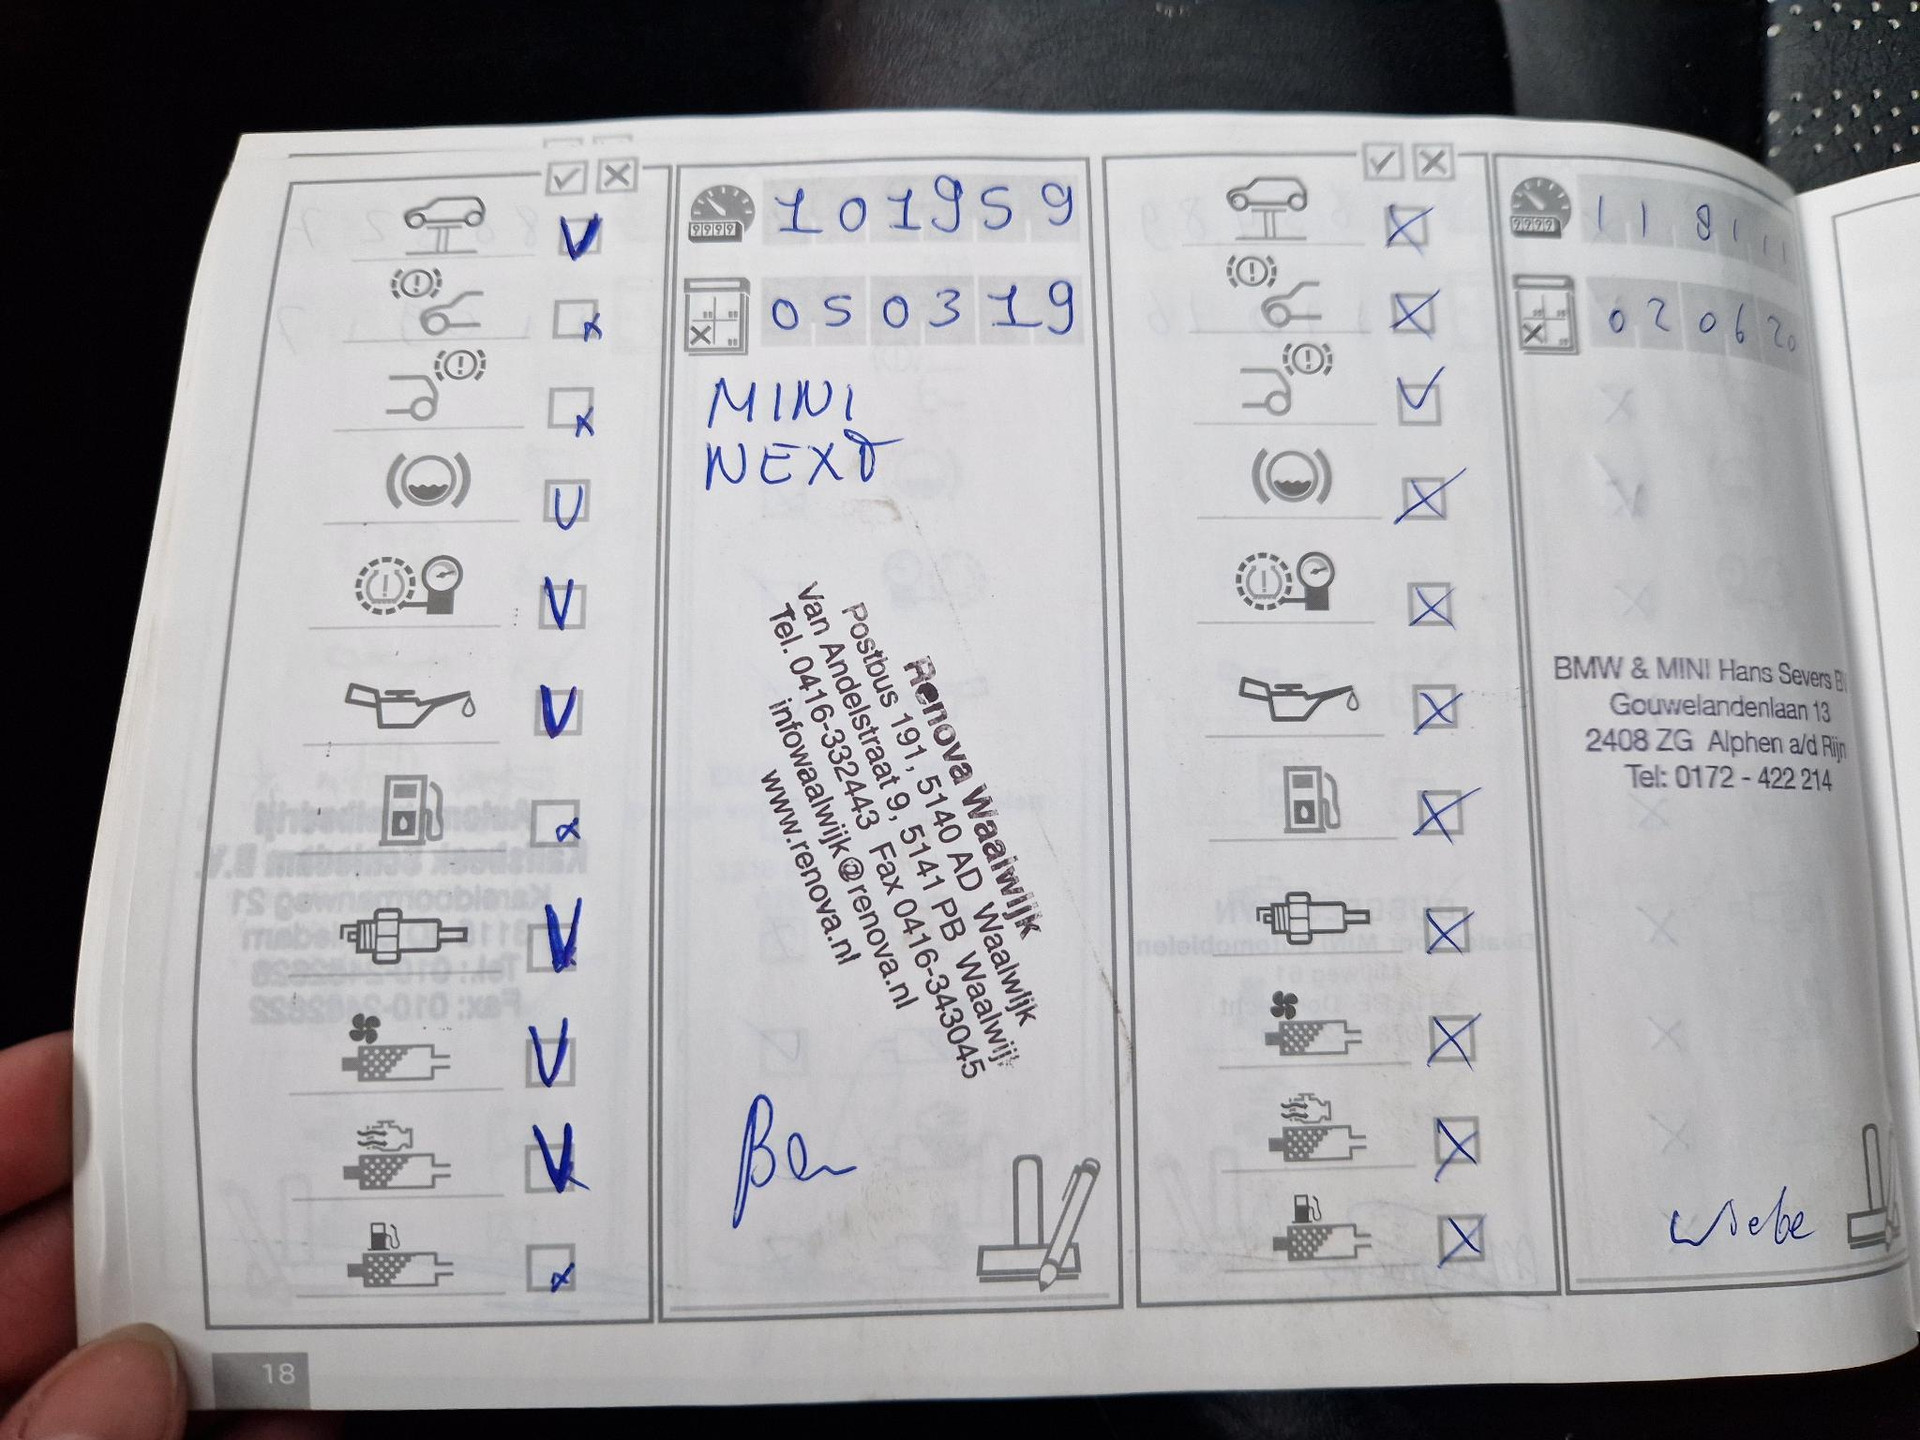 101959
050319
MINI
NEXT
Renova Waalwijk
Postbus 191, 5140 AD Waalwijk
Van Andelstraat 9, 5141 PB Waalwijk
Tel. 0416-332443 Fax 0416-343045
infowaalwijk@renova.nl
www.renova.nl
020620
BMW & MINI Hans Severs
Gouwelandenlaan 13
2408 ZG Alphen a/d Rijn
Tel: 0172 - 422 214
Wiebe
18